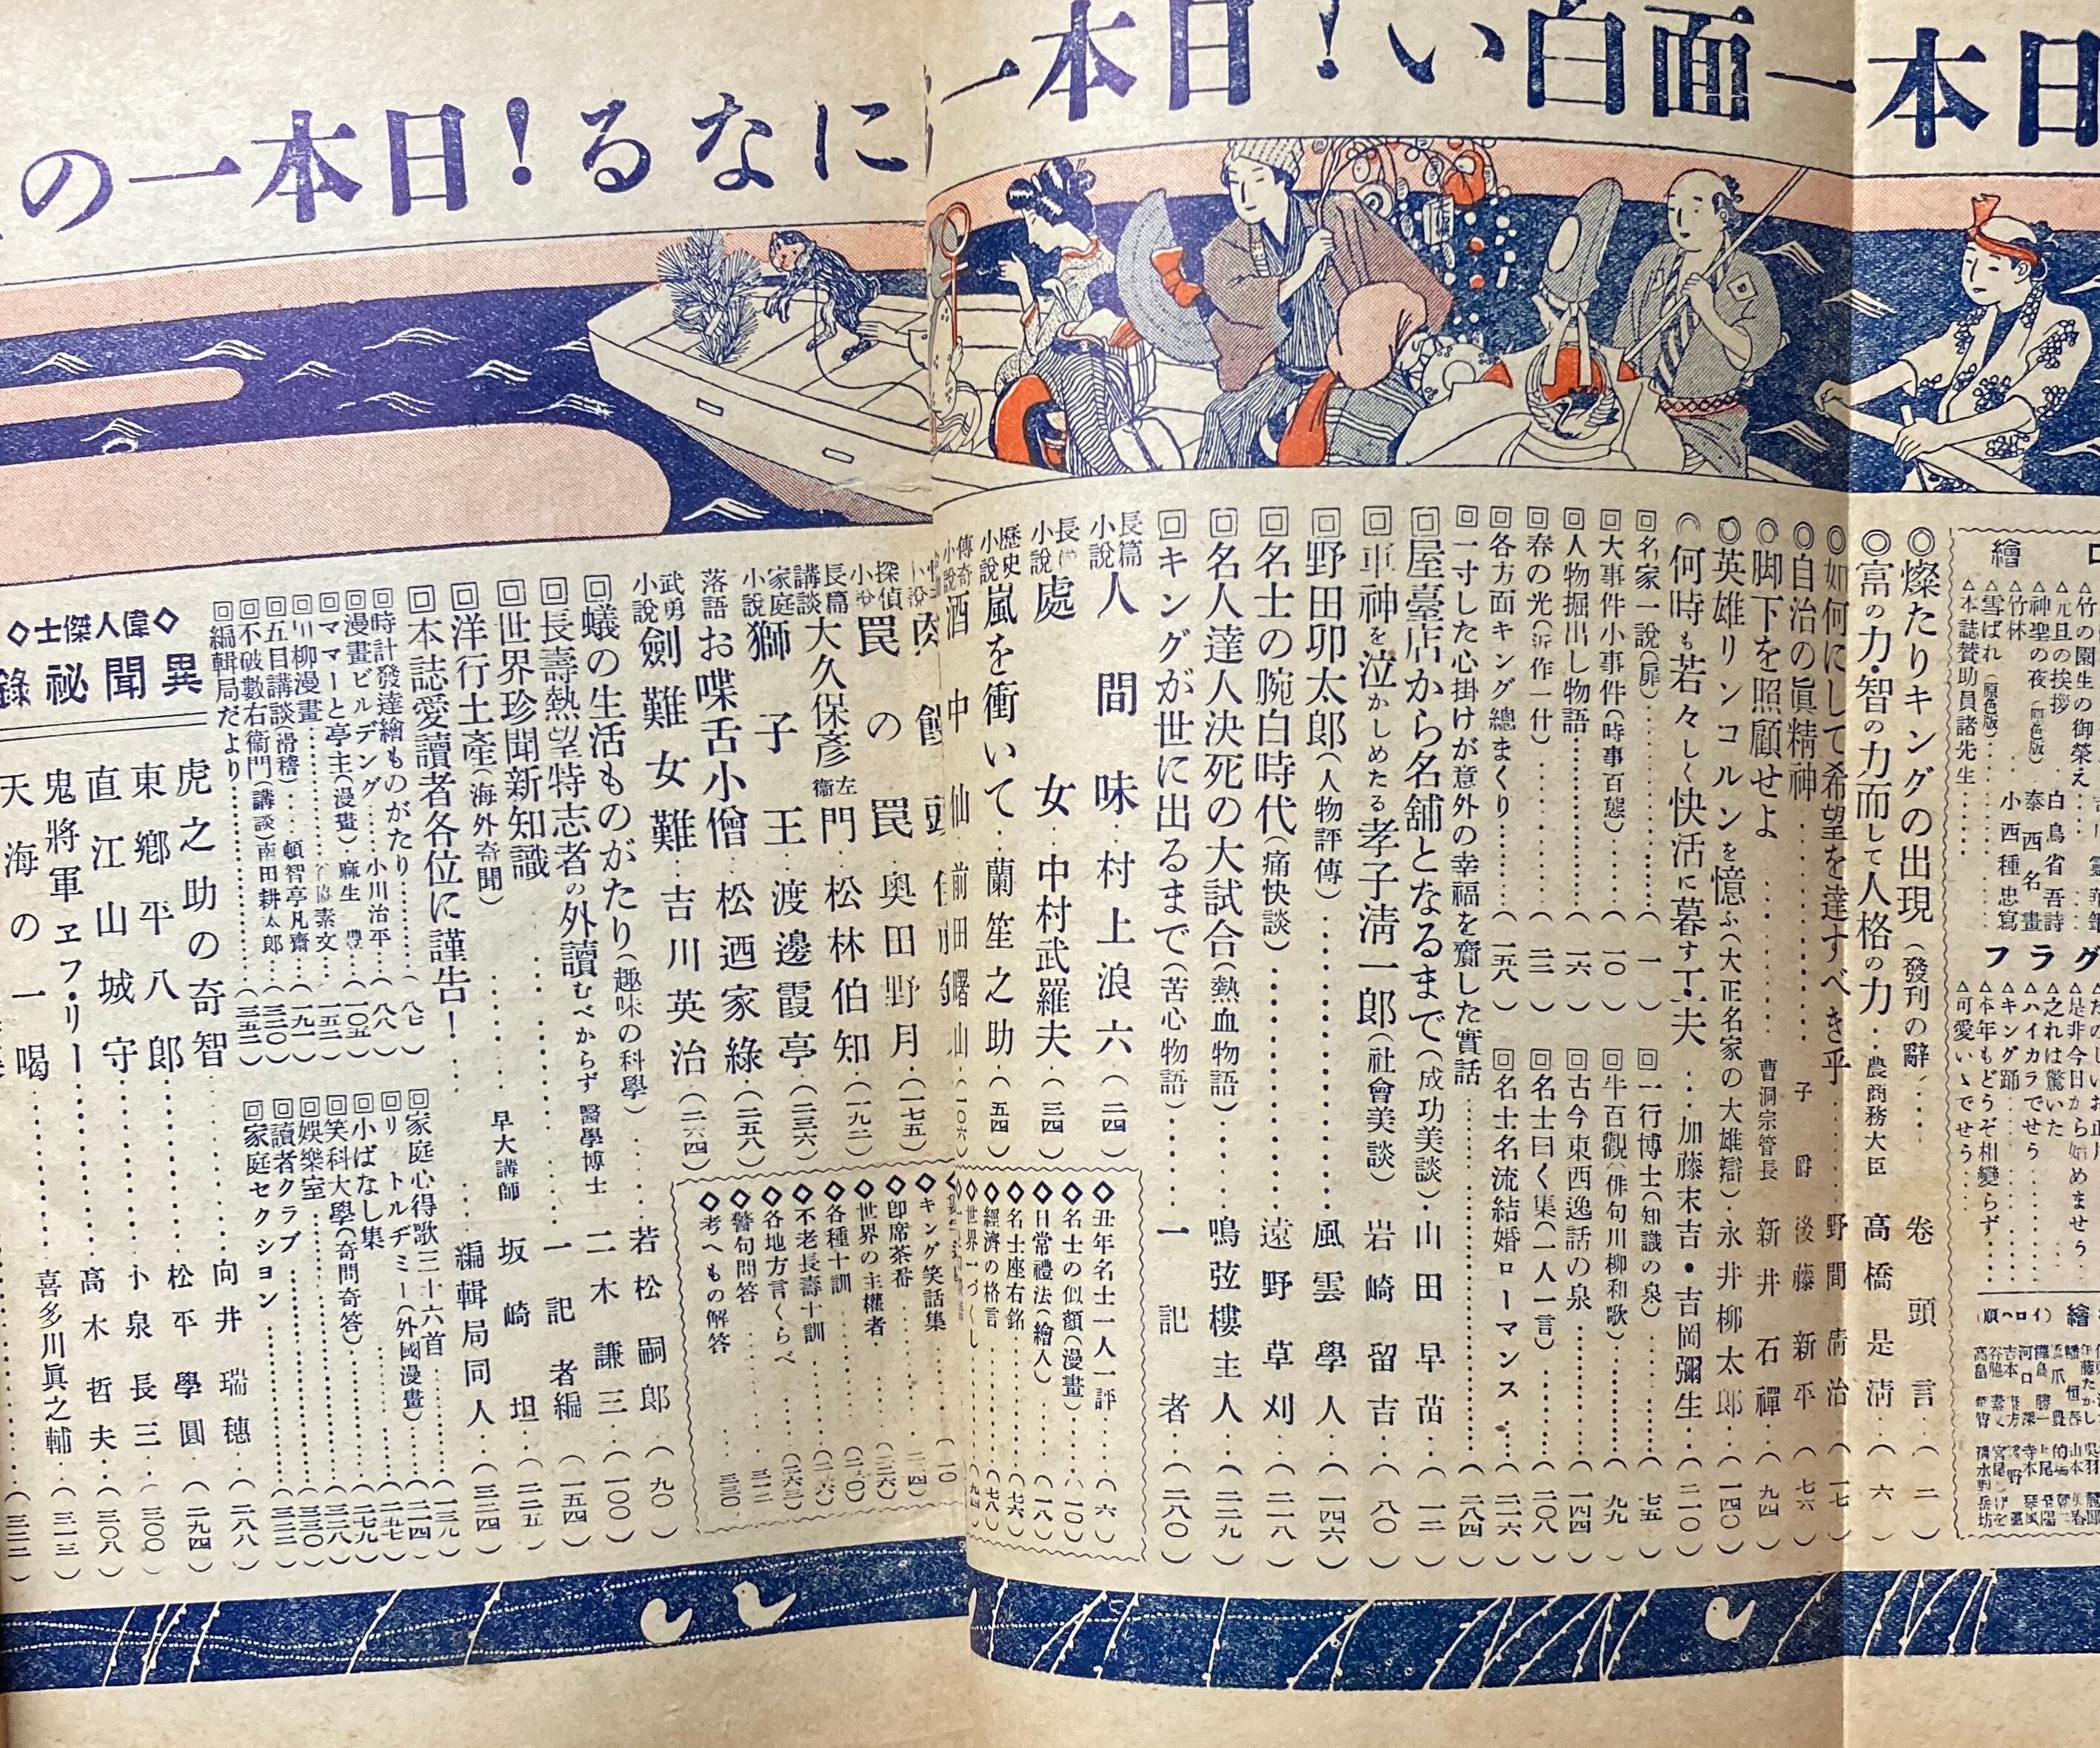 日本一面白い!日本一
になる!日本一の
繪
△竹の園生の御榮え
△元旦の挨拶
白鳥省吾詩
△神聖の夜(原色版)
泰西名畫
△竹林
小西種忠寫
△雪ばれ(原色版)
△本誌賛助員諸先生
グラフ
△是非今日から始めませう
△之れは驚いた
△ハイカラでせう
△キング踊
△本年もどうぞ相變らず
△可愛いゝでせう
(イロハ順)
◎燦たりキングの出現(發刊の辭)
卷頭言(二)
◎富の力・智の力而して人格の力
農商務大臣 高橋是淸(六)
◎如何にして希望を達すべき乎
野間淸治(一七)
◎自治の眞精神
子爵 後藤新平(七六)
◎脚下を照顧せよ
曹洞宗管長 新井石禪(九四)
◎英雄リンコルンを憶ふ(大正名家の大雄辯)
永井柳太郎(一四〇)
◎何時も若々しく快活に暮す工夫
加藤末吉・吉岡彌生(二一〇)
回名家一說(扉)(一)
回一行博士(知識の泉)(七五)
回大事件小事件(時事百態)(一〇)
回牛百觀(俳句川柳和歌)(九九)
回人物掘出し物語(一六)
回古今東西逸話の泉(一四四)
回春の光(近作一什)(三三)
回名士曰く集(一人一言)(二〇八)
回各方面キング總まくり(一五八)
回名士名流結婚ローマンス(二一六)
回一寸した心掛けが意外の幸福を齎した實話(二八四)
回屋臺店から名舖となるまで(成功美談)
山田早苗(一二)
回車神を泣かしめたる孝子淸一郎(社會美談)
岩崎留吉(八〇)
回野田卯太郎(人物評傳)
風雲學人(一四六)
回名士の腕白時代(痛快談)
遠野草刈(二一八)
回名人達人決死の大試合(熱血物語)
鳴弦樓主人(二二九)
回キングが世に出るまで(苦心物語)
一記者(二八〇)
長篇小說 人間味 村上浪六(二四)
長篇小說 處女 中村武羅夫(三四)
歷史小說 嵐を衝いて 蘭笙之助(五四)
傳奇小說 酒中仙 前田曙山(一〇六)
探偵小說 罠の罠 奧田野月(一七五)
長篇講談 大久保彥左衞門 松林伯知(一九二)
家庭小說 獅子王 渡邊霞亭(二三六)
落語 お喋舌小僧 松迺家綠(二五八)
武勇小說 劍難女難 吉川英治(二六四)
◇丑年名士一人一評(六)
◇名士の似顏(漫畫)(一〇)
◇日常禮法(繪人)(一八)
◇名士座右銘(七六)
◇經濟の格言(七八)
◇世界一づくし(九四)
◇キング笑話集
◇卽席茶番
◇世界の主權者
◇各種十訓
◇不老長壽十訓
◇各地方言くらべ
◇警句問答
◇考へもの解答
回蟻の生活ものがたり(趣味の科學)
若松嗣郎(九〇)
回長壽熱望特志者の外讀むべからず
醫學博士 二木謙三(一〇〇)
回世界珍聞新知識
一記者編(一五四)
回洋行土產(海外奇聞)
早大講師 坂崎坦(二二五)
回本誌愛讀者各位に謹告!
編輯局同人(三二四)
回時計發達繪ものがたり(八七)
回漫畫ビルデング 小川治平(八八)
回ママーと亭主(漫畫)麻生豐(一〇五)
回川柳漫畫 谷脇素文(一五二)
回五目講談(滑稽) 頓智亭凡齋(一九一)
回不破數右衞門(講談)南田耕太郎(三二〇)
回編輯局だより(三五二)
回家庭心得歌三十六首(一三九)
回リトルヂミー(外國漫畫)(二一四)
回小ばなし集(二五七)
回笑科大學(奇問奇答)(二七九)
回娛樂室(三二八)
回讀者クラブ(三三〇)
回家庭セクション(三三二)
◇偉人傑士◇
異聞祕錄
虎之助の奇智 向井瑞穗(二八八)
東鄕平八郎 松平學圓(二九四)
直江山城守 小泉長三(三〇〇)
鬼將軍ヱフ・リー 高木哲夫(三〇八)
天海の一喝 喜多川眞之輔(三一三)